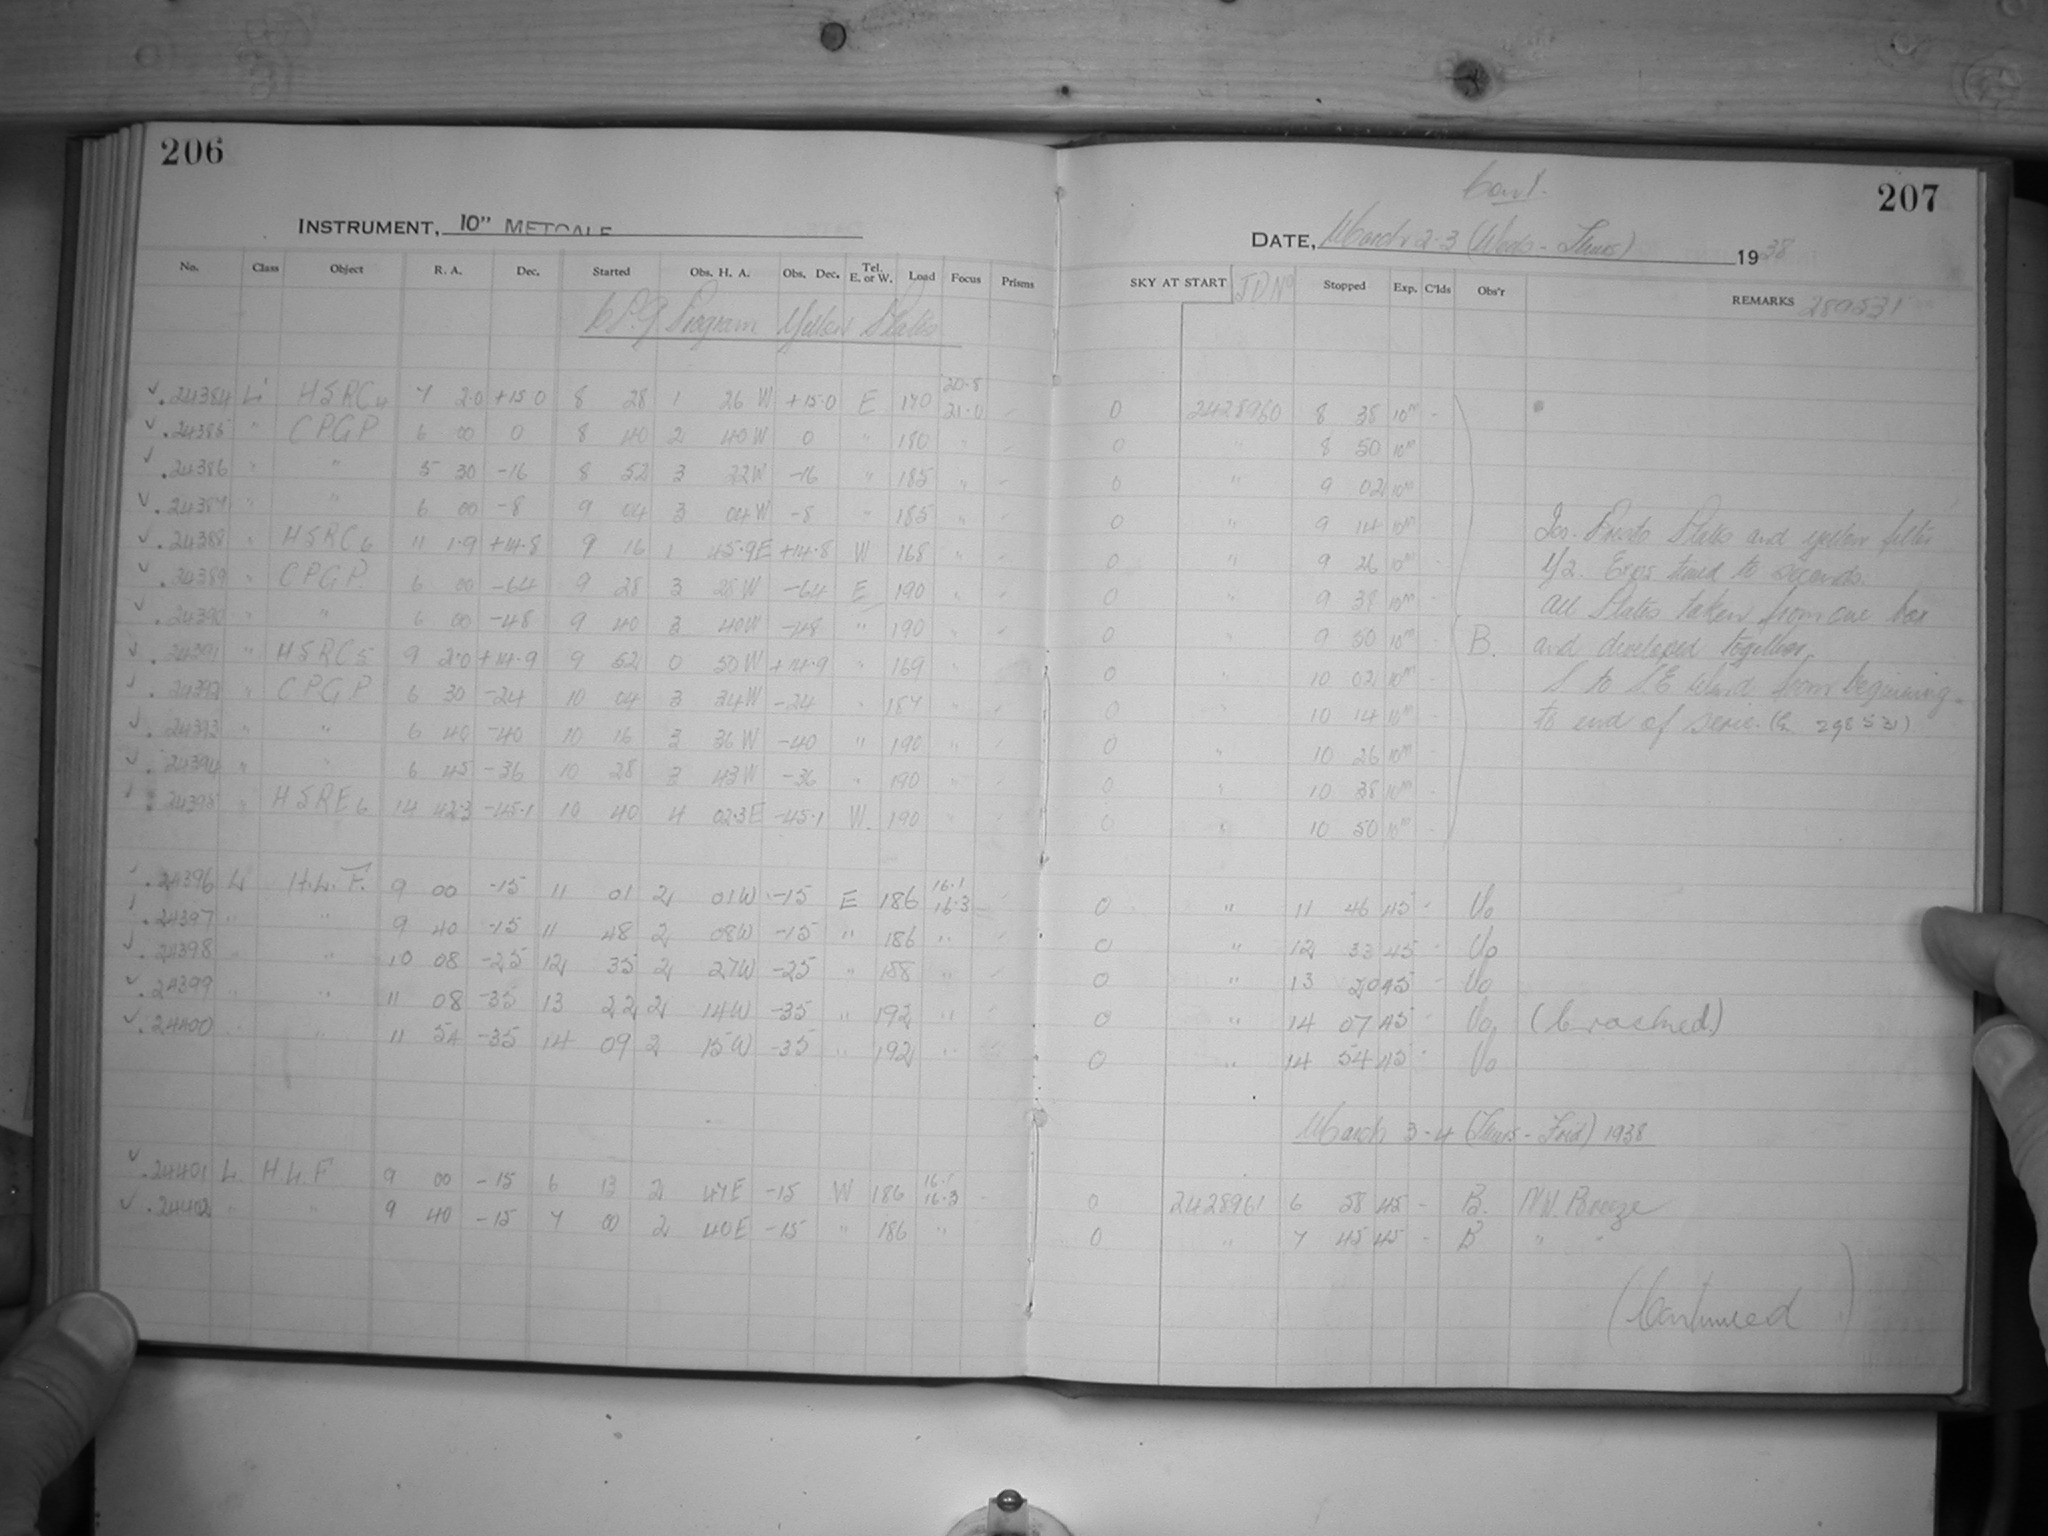 206
INSTRUMENT, 10" METCALF
No. Class Object R. A. Dec. Started Obs. H. A. Obs. Dec. Tel. E. or W. Load Focus Prisms
Program Yellow Plates
24384 L HSRC4 7 2.0 +15.0 8 28 1 26 W +15.0 E 170 20.8 21.0
24385 " CPGP 6 00 0 8 40 2 40W 0 " 180 "
24386 " " 5 30 -16 8 52 3 22W -16 " 185 "
24387 " " 6 00 -8 9 04 3 04W -8 " 185 "
24388 " HSRC6 11 1.9 +14.8 9 16 1 45.9E +14.8 W 168 "
24389 " CPGP 6 00 -64 9 28 3 28W -64 E 190 "
24390 " " 6 00 -48 9 40 3 40W -48 " 190 "
24391 " HSRC5 9 2.0 +14.9 9 52 0 50W +14.9 " 169 "
24392 " CPGP 6 30 -24 10 04 3 34W -24 " 187 "
24393 " " 6 40 -40 10 16 3 36W -40 " 190 "
24394 " " 6 45 -36 10 28 3 43W -36 " 190 "
24395 " HSRE6 14 42.3 -45.1 10 40 4 02.3E -45.1 W. 190 "
24396 L H.L.F. 9 00 -15 11 01 2 01W -15 E 186 16.1 16.3
24397 " " 9 40 -15 11 48 2 08W -15 " 186 "
24398 " 10 08 -25 12 35 2 27W -25 " 188 "
24399 " " 11 08 -35 13 22 2 14W -35 " 192 "
24400 " " 11 54 -35 14 09 2 15W -35 " 192 "
24401 L HLF 9 00 -15 6 13 2 47E -15 W 186 16.1 16.3
24402 " " 9 40 -15 7 00 2 40E -15 " 186 "
207
Cont.
DATE, March 2-3 (Weds - Thurs) 1938
SKY AT START JD No Stopped Exp. C'lds Obs'r REMARKS 289531
0 2428960 8 38 10m -
0 " 8 50 10m
0 " 9 02 10m
0 " 9 14 10m Plates and yellow filter
0 " 9 26 10m Exps timed to seconds.
0 " 9 38 10m All Plates taken from one box
0 " 9 50 10m B. and developed together.
0 " 10 02 10m S to SE Wind from beginning
0 " 10 14 10m to end of serie. 298531)
0 " 10 26 10m
0 " 10 38 10m
0 " 10 50 10m
0 " 11 46 45 - Uo
0 " 12 33 45 - Uo
0 " 13 20 45 - Uo
0 " 14 07 45 - Uo, (Cracked.)
0 " 14 54 45 - Uo
March 3-4 (Thurs - Frid) 1938
0 2428961 6 58 45 - B. NW. Breeze
0 " 7 45 45 - B " "
(Continued)